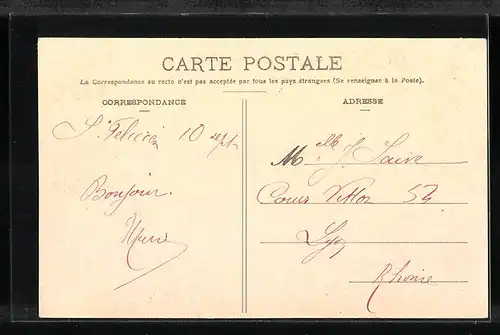 CARTE POSTALE
La Correspondance au recto n'est pas acceptée par tous les pays étrangers (Se renseigner à la Poste).
CORRESPONDANCE
St Félicien 10 sept
Bonjour.
ADRESSE
M
Cours Vitton 52
Lyon
Rhone